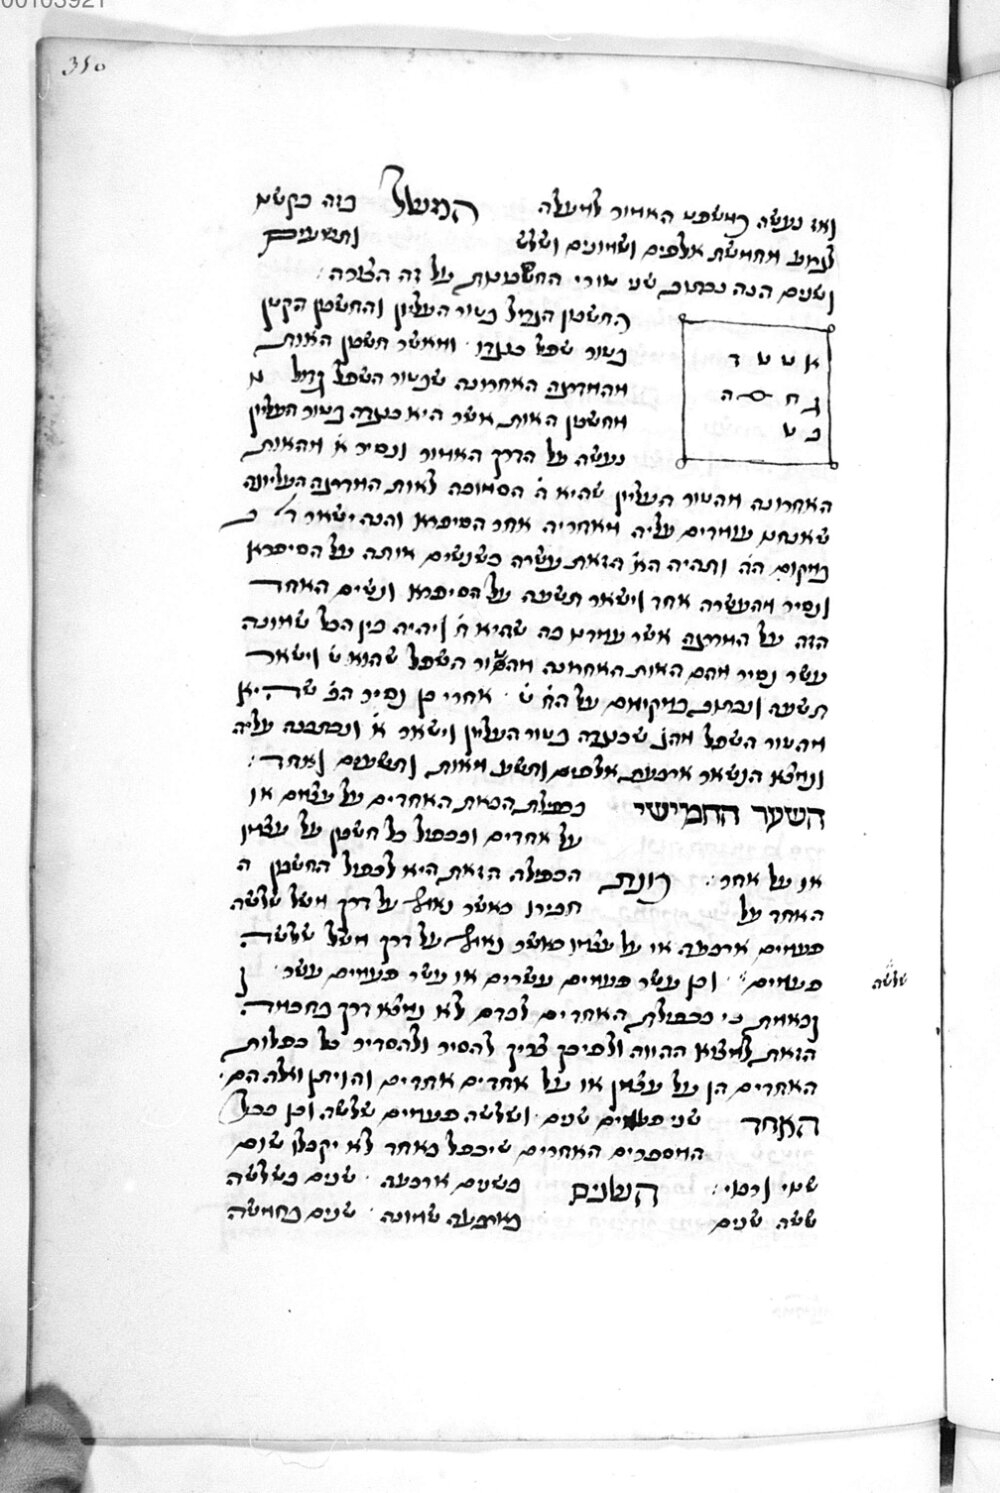 00103921
350
ואז נעשה כמשפט האמור למעלה המשל בזה בקשנו
לגרוע מחמשת אלפים ושמונים ושלש ותשעים
ושנים הנה נכתוב שני טורי החשבונות על זה הצורה:
החשבון הגדול בטור העליון והחשבון הקטן
בטור שפל כנגדו. ומאשר חשבון האות
מהמדרגה האחרונה שבטור השפל גדול מ
מחשבון האות אשר היא כנגדה בטור העליון
נעשה על הדרך האמור ונסיר א' מהאות
א ט ט ד
ג ח ס ה
ב ט
האחרונה מהטור העליון שהיא ה' הסמוכה לאות המדרגה העליונה
שאנחנו עומדים עליה מאחריה אחר הסיפרא והנה ישאר ד' ב
במקום הה' ותהיה הא' הזאת עשרה כשנשים אותה על הסיפרא
ונסיר מהעשרה אחד וישאר תשעה על הסיפרא ונשים האחד
הזה על המדרגה אשר עמדנו בה שהיא ח' ויהיה בין הכל שמונה
עשר נסיר מהם האות האחרונה מהטור השפל שהוא ט' וישאר
תשעה ונכתוב במקומם על הח' ט'. אחרי כן נסיר הב' שהיא
מהטור השפל מהג' שכנגדה בטור העליון וישאר א' ונכתבנה עליה
ונמצא הנשאר ארבעת אלפים ותשע מאות ותשעים ואחד:
השער החמישי בכפילת הכאת האחדים על עצמם או
על אחדים ובכפול כל חשבון על עצמו
או על אחר: כוונת הכפולה הזאת היא לכפול החשבון ה
האחד על חבירו כאשר נאמר על דרך משל שלשה
פעמים ארבעה או על עצמו כאשר נאמר על דרך משל שלשה
פעמים וכן עשר פעמים עשרים או עשר פעמים עשר. ו
שלשה
ובאמת כי בכפולת האחדים לבדם לא נמצא דרך בחכמה
הזאת למצוא ההווה ולפיכך צריך להסיר ולהסדיר כל כפלות
האחדים הן על עצמן או על אחדים אחרים והויתן ואלה הם.
האחד שני פעמים שנים. ושלשה פעמים שלשה וכן בכל
המספרים האחרים שיכפל באחד לא יקבלו שום
שנוי ורבוי: השנים בשנים ארבעה. שנים בשלשה
ששה שנים בארבעה שמונה. שנים בחמשה